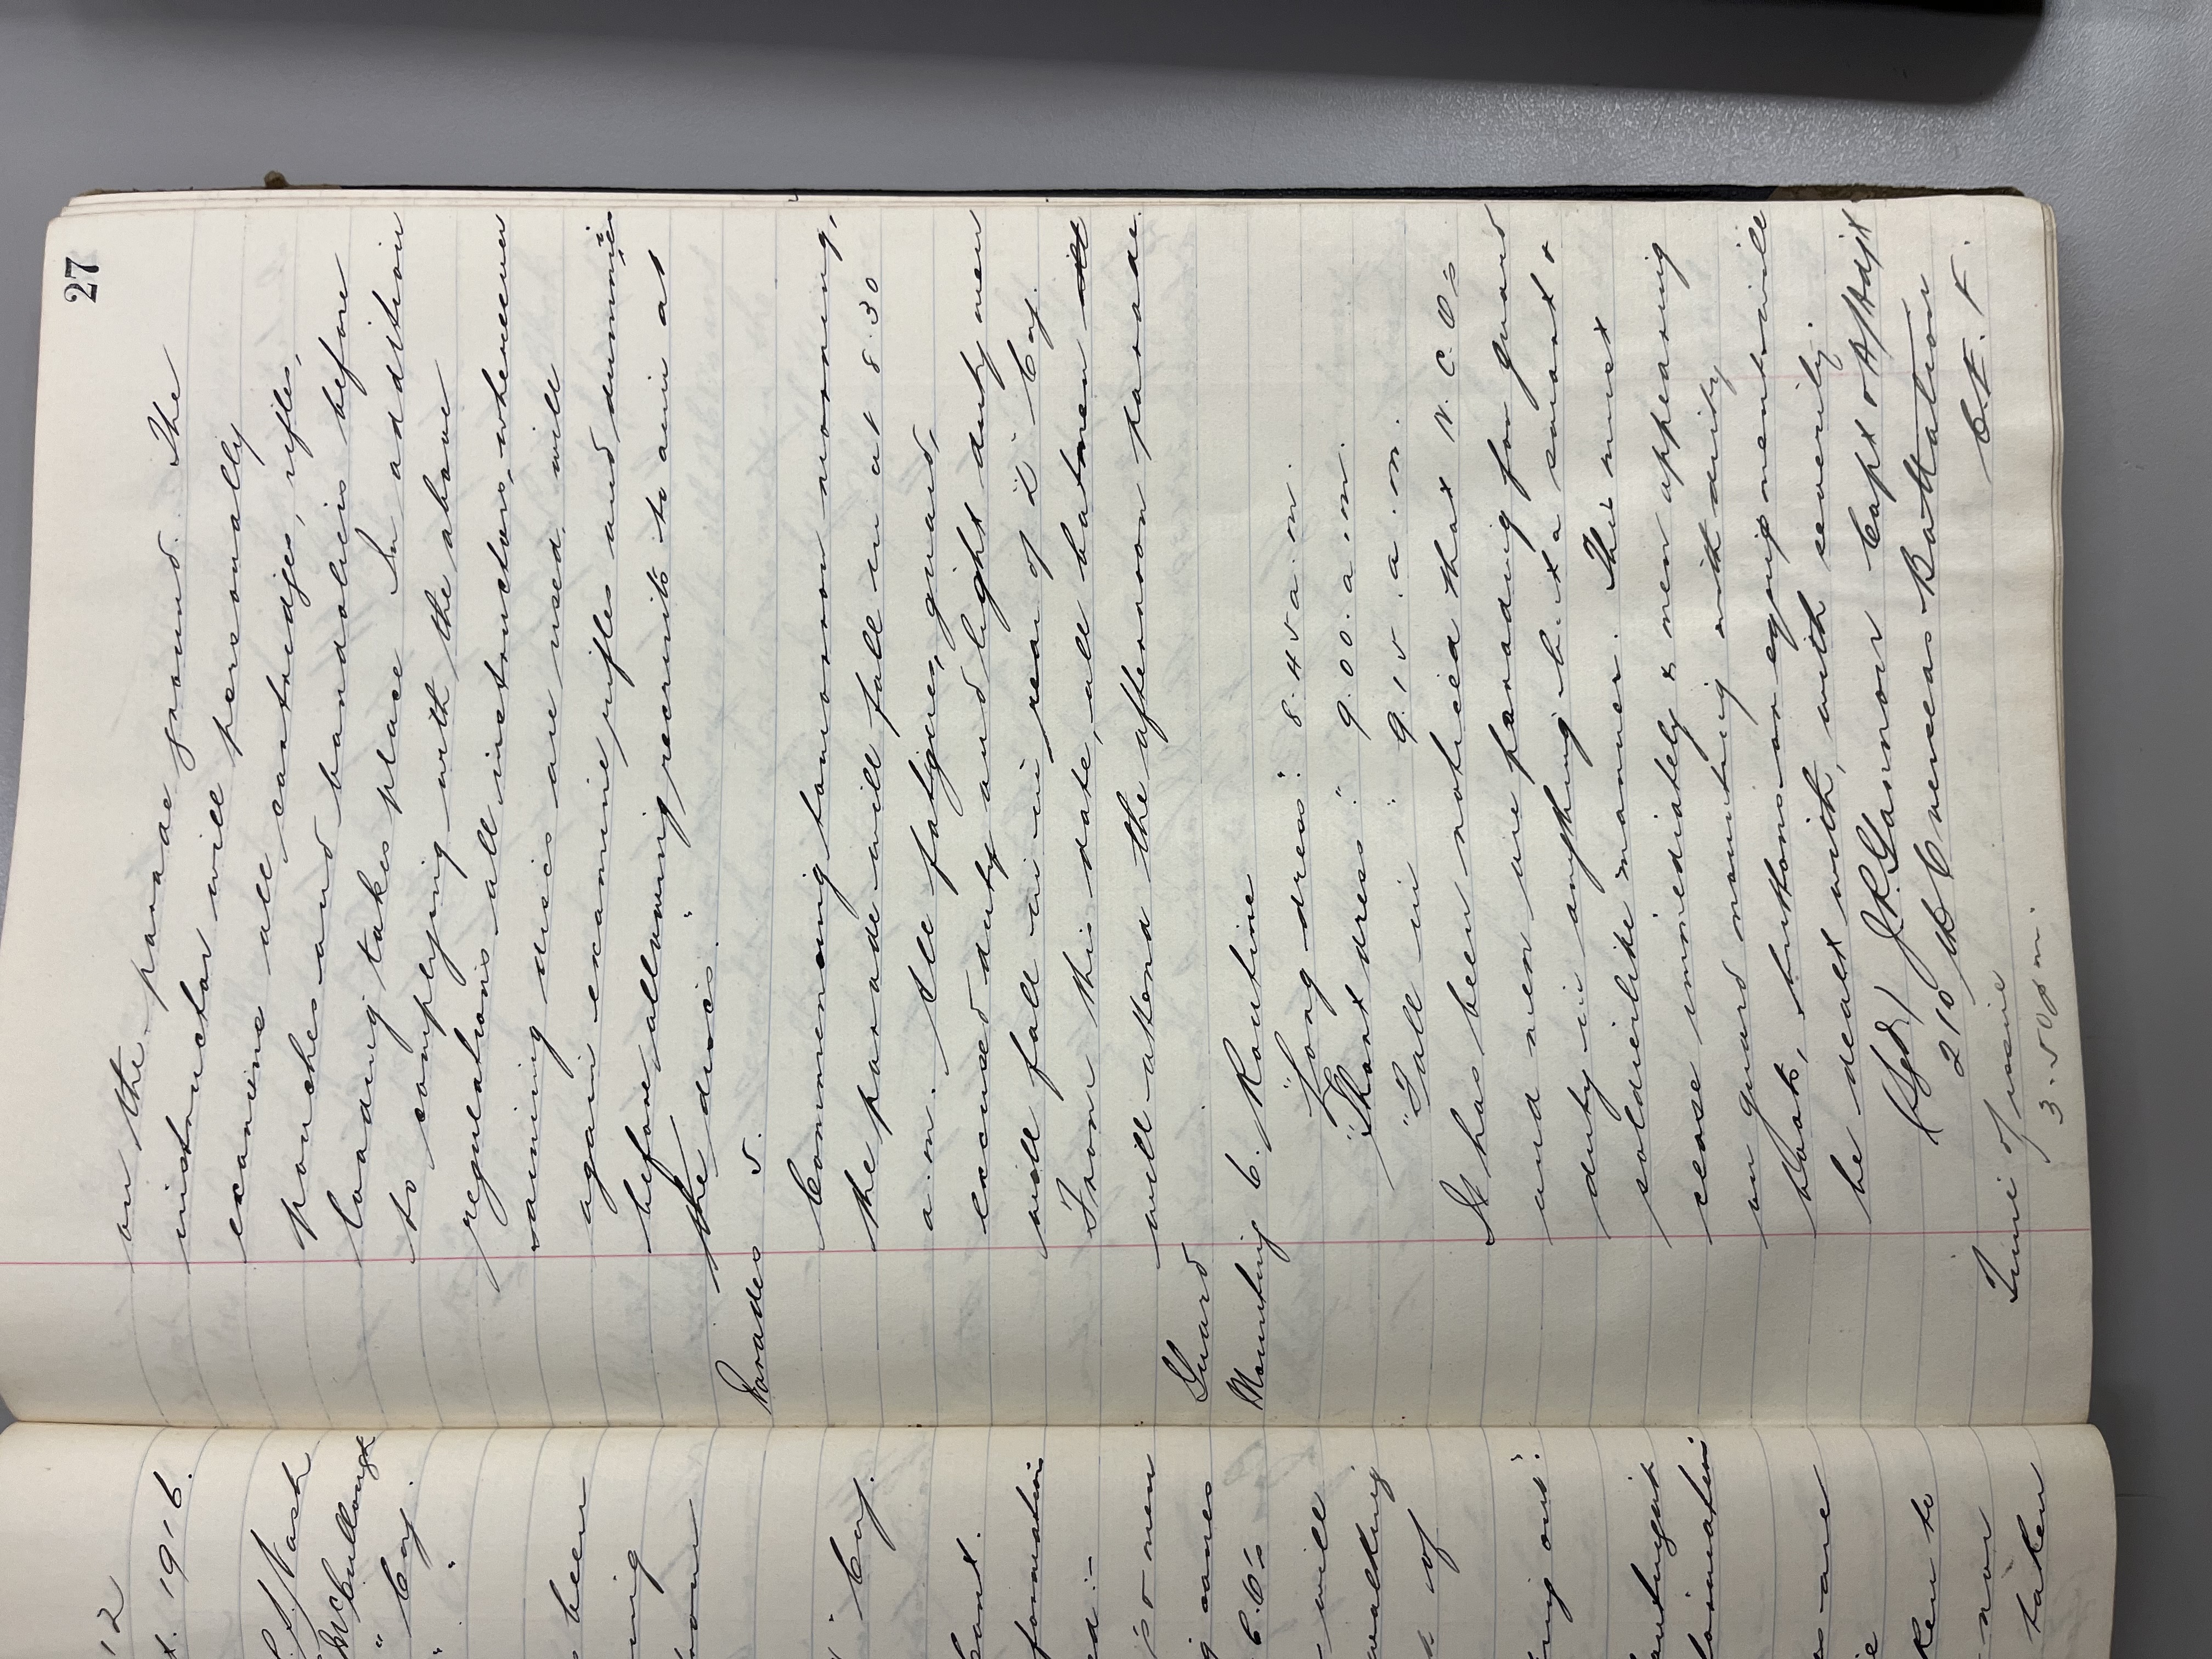 27
on the parade ground. The
instructor will personally
examine all cartridges, rifles,
pouches and bandoliers before
loading takes place. In addition
to complying with the above
regulations all instructors, whenever
aiming discs are used, will
again examine rifles and dummies
before allowing recruits to aim at
the discs."
Parades 5.
Commencing tomorrow morning,
the parade will fall in at 8.30
a.m. All fatigues, guard,
excused duty and light duty men
will fall in in rear of "D" Coy.
From this date, all batmen
will attend the afternoon parade.
Guard
Mounting 6. Routine
"Long dress" 8.45 a.m.
"Short dress" 9.00 a.m.
"Fall in" 9.15 a.m.
It has been noticed that N.C.O's
and men are parading for guard
duty in anything b.t a smart &
soldierlike manner. This must
cease immediately & men appearing
on guard mounting with dirty
boots, buttons or equipment will
be dealt with, with severity.
(Sgd) Capt & A/Adjt
210 th Overseas Battalion
C.E.F.
Time of issue
3.50 p.m.
12
1916.
Nash
McCullough
" Coy.
"
been
Coy.
formation
men
canes
C.O's
will
walking
of
ing out".
are
ken to
nor
taken